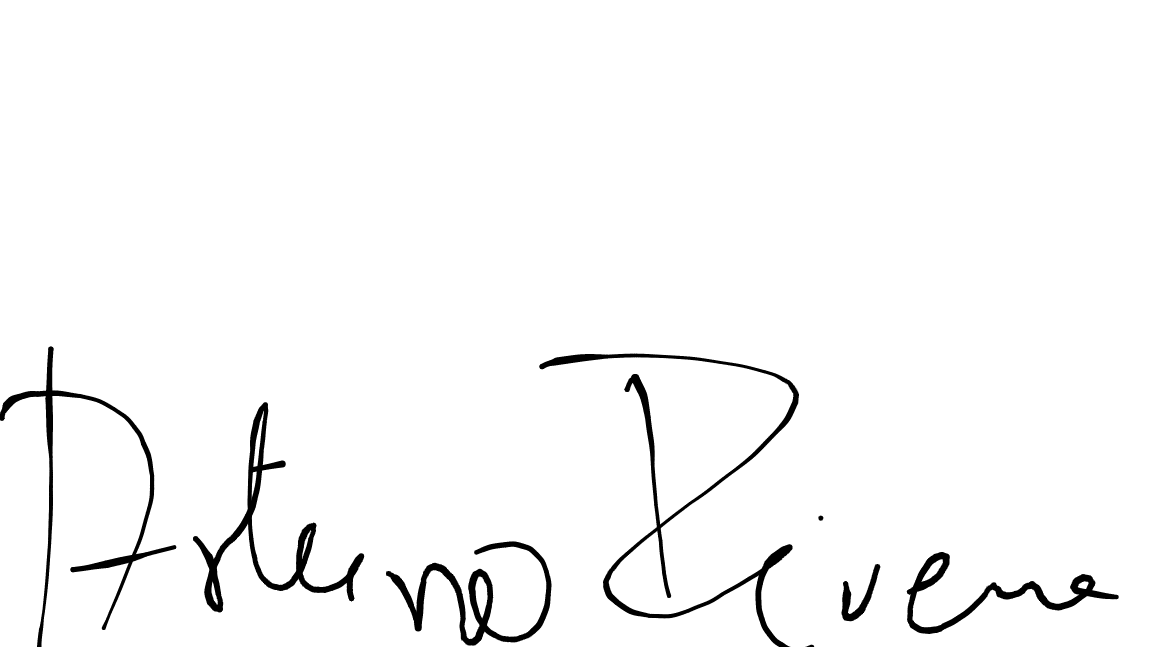 Arturo Rivera